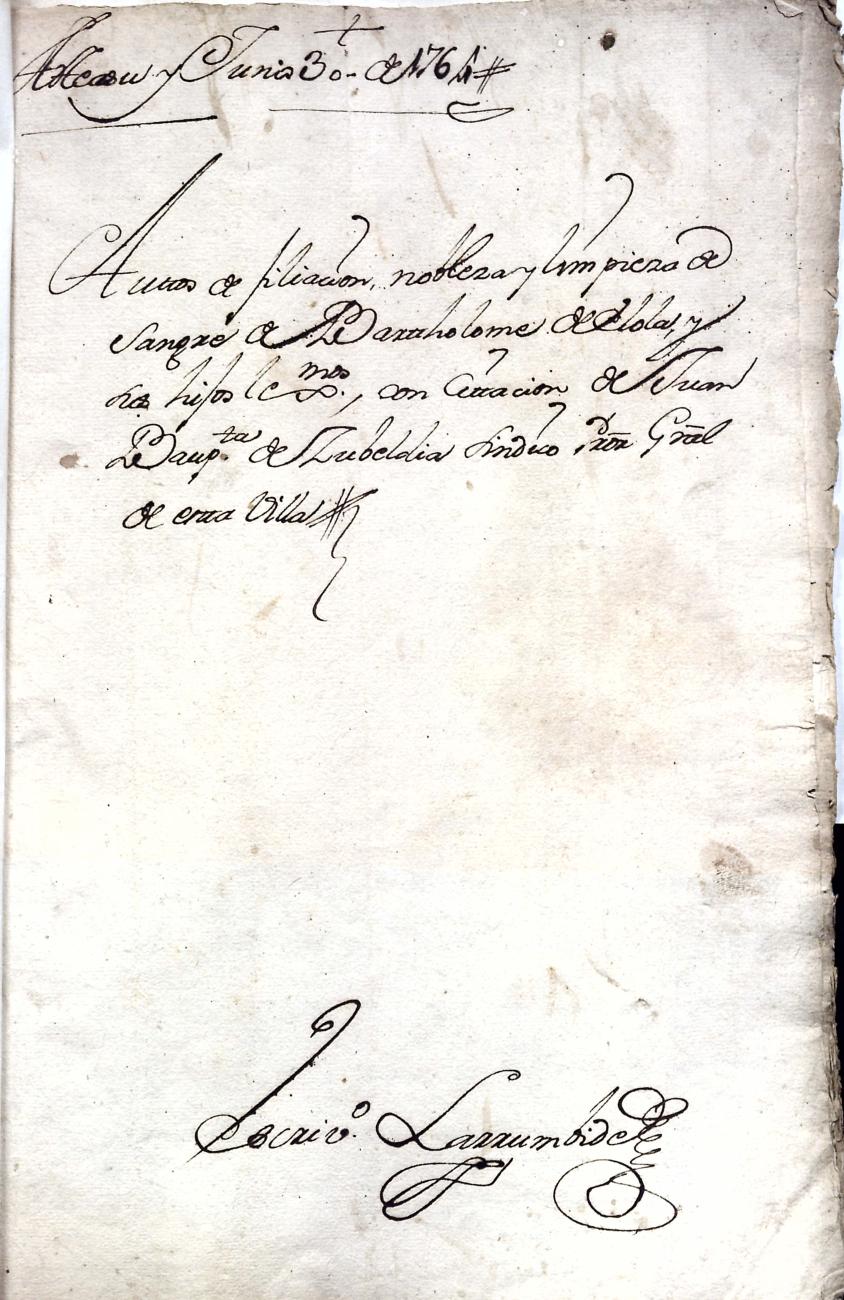 y Junio 30 de 1764
Autos de filiacion, nobleza y limpieza de
Sangre de Bartholome de Elola, y
sus hijos lexmos., con Cittacion de Juan
Baupta de Zubeldia Sindico Pror Gral
de esta Villa
Escrivo. Larrumbide